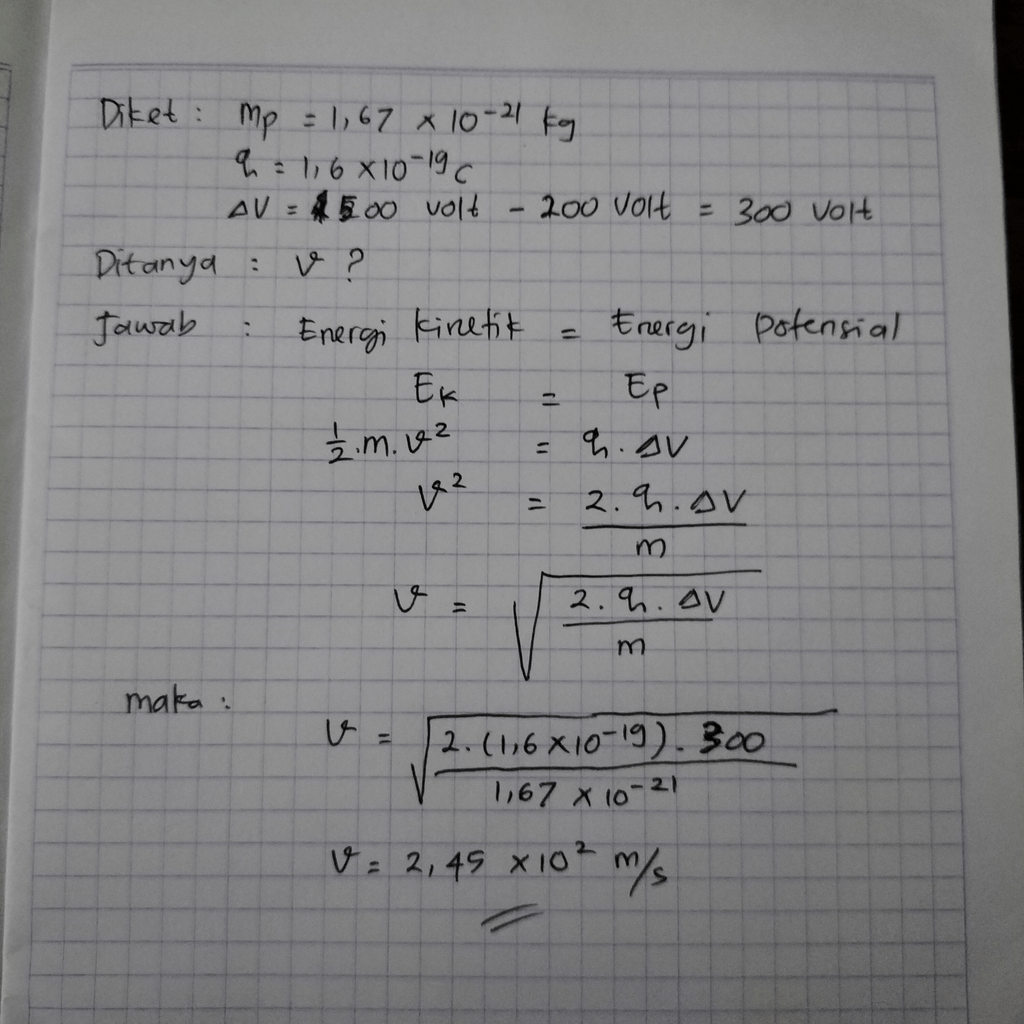 Diket : mp = 1,67 × 10⁻²¹ kg
q = 1,6 × 10⁻¹⁹ C
ΔV = 500 volt - 200 volt = 300 volt
Ditanya : v ?
Jawab : Energi kinetik = Energi potensial
Ek = Ep
½.m.v² = q.ΔV
v² = 2.q.ΔV / m
v = √(2.q.ΔV / m)
maka :
v = √(2.(1,6 × 10⁻¹⁹).300 / 1,67 × 10⁻²¹)
v = 2,45 × 10² m/s